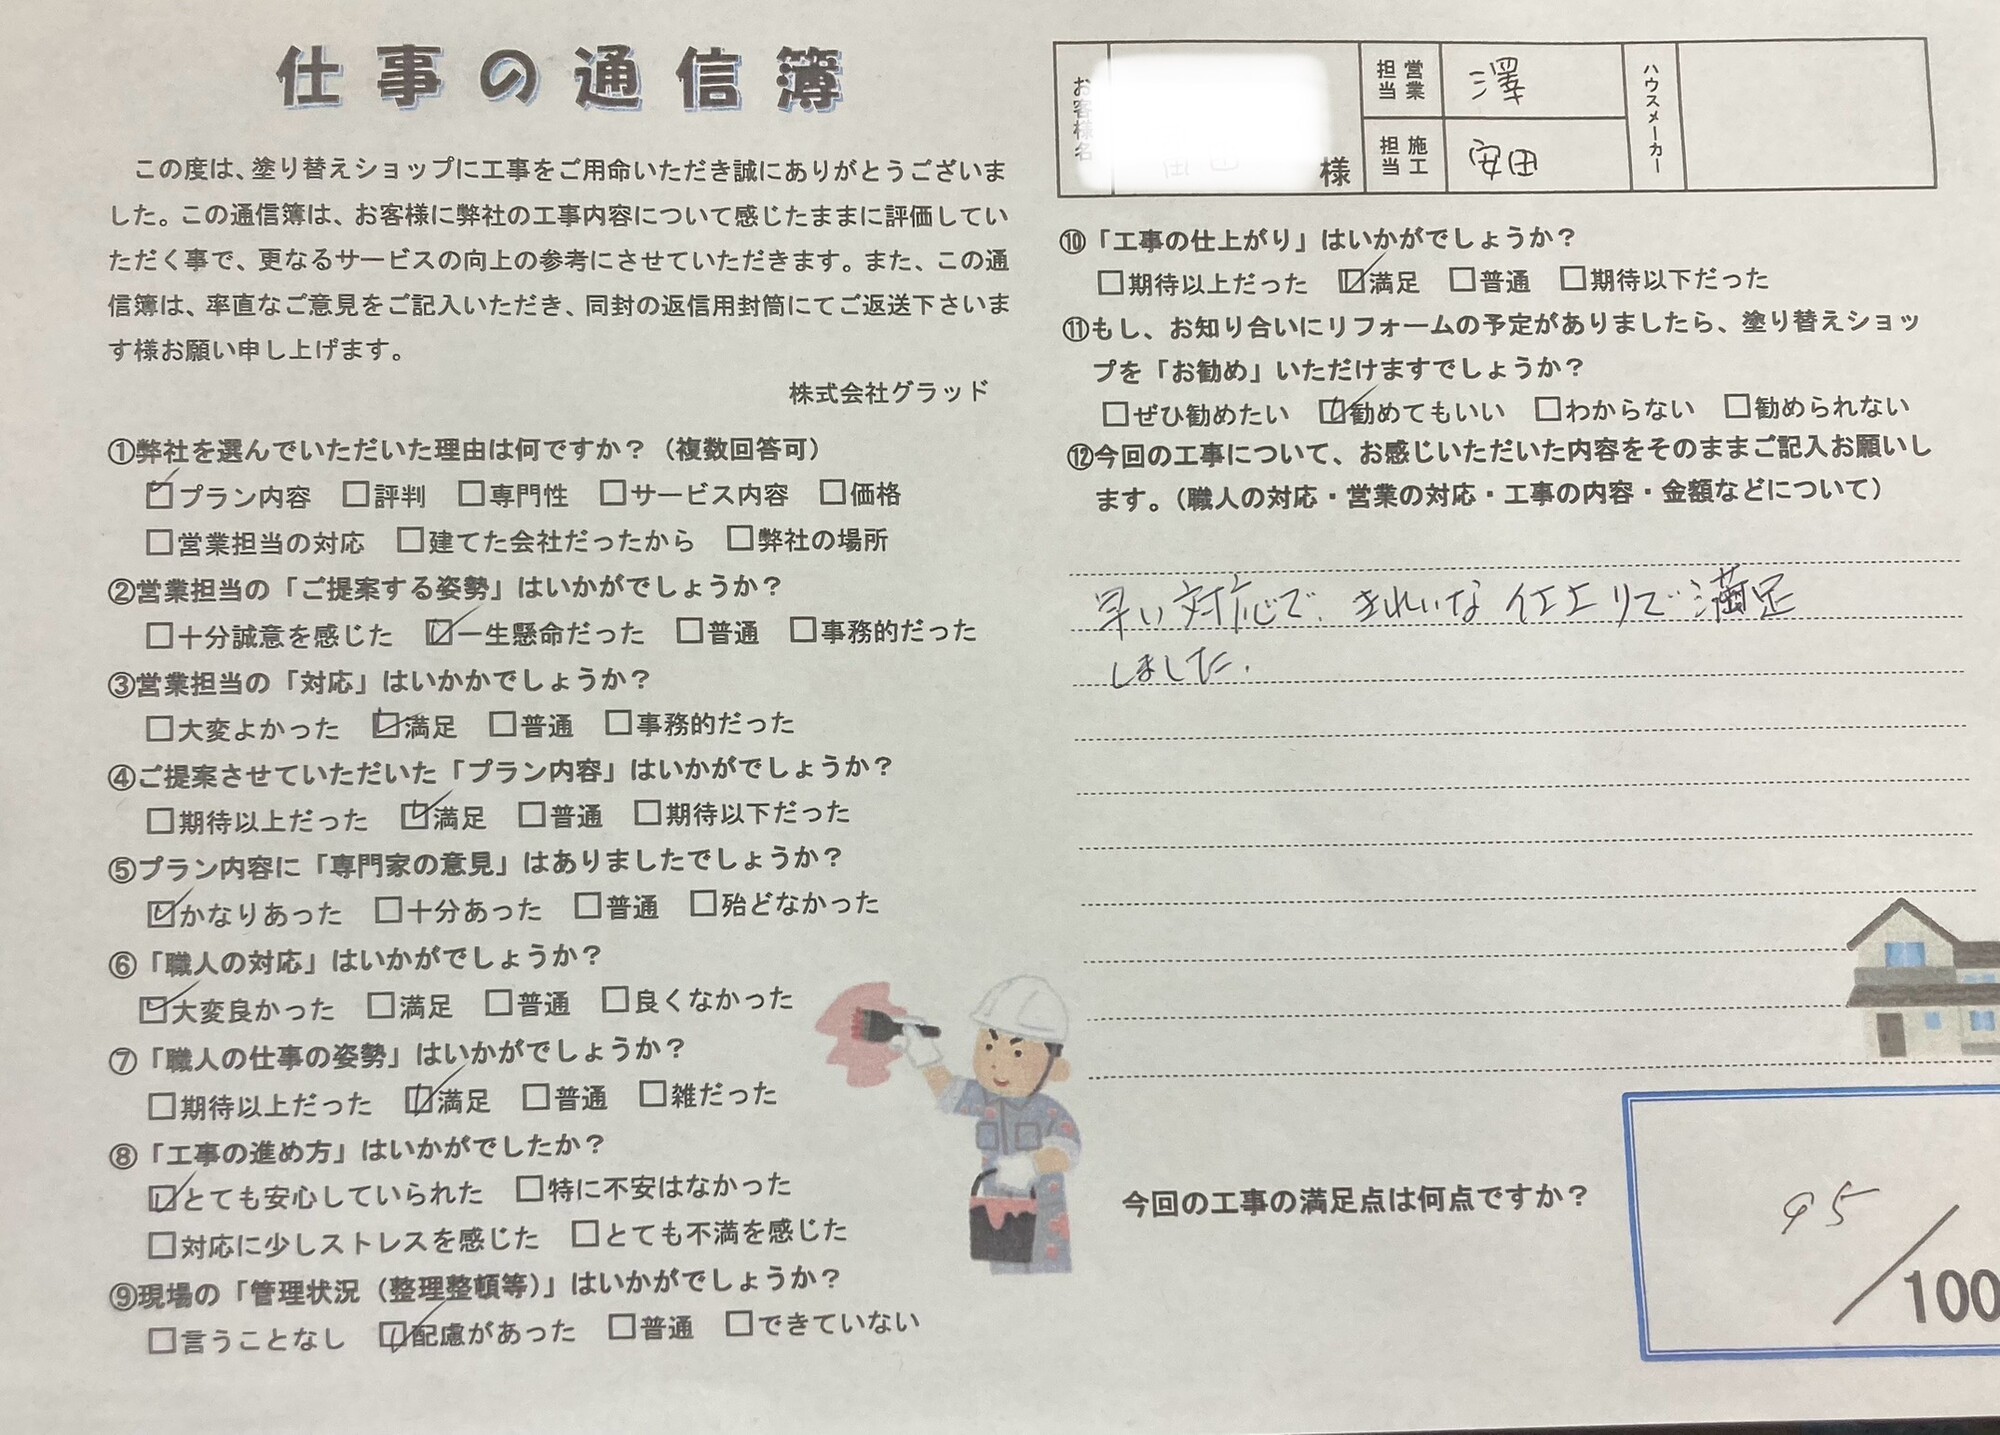 仕事の通信簿
この度は、塗り替えショップに工事をご用命いただき誠にありがとうございま
した。この通信簿は、お客様に弊社の工事内容について感じたままに評価してい
ただく事で、更なるサービスの向上の参考にさせていただきます。また、この通
信簿は、率直なご意見をご記入いただき、同封の返信用封筒にてご返送下さいま
す様お願い申し上げます。
株式会社グラッド
①弊社を選んでいただいた理由は何ですか？（複数回答可）
☑プラン内容 □評判 □専門性 □サービス内容 □価格
□営業担当の対応 □建てた会社だったから □弊社の場所
②営業担当の「ご提案する姿勢」はいかがでしょうか？
□十分誠意を感じた ☑一生懸命だった □普通 □事務的だった
③営業担当の「対応」はいかかでしょうか？
□大変よかった ☑満足 □普通 □事務的だった
④ご提案させていただいた「プラン内容」はいかがでしょうか？
□期待以上だった ☑満足 □普通 □期待以下だった
⑤プラン内容に「専門家の意見」はありましたでしょうか？
☑かなりあった □十分あった □普通 □殆どなかった
⑥「職人の対応」はいかがでしょうか？
☑大変良かった □満足 □普通 □良くなかった
⑦「職人の仕事の姿勢」はいかがでしょうか？
□期待以上だった ☑満足 □普通 □雑だった
⑧「工事の進め方」はいかがでしたか？
☑とても安心していられた □特に不安はなかった
□対応に少しストレスを感じた □とても不満を感じた
⑨現場の「管理状況（整理整頓等）」はいかがでしょうか？
□言うことなし ☑配慮があった □普通 □できていない
お客様名 様
営業担当 澤
施工担当 安田
ハウスメーカー
⑩「工事の仕上がり」はいかがでしょうか？
□期待以上だった ☑満足 □普通 □期待以下だった
⑪もし、お知り合いにリフォームの予定がありましたら、塗り替えショッ
プを「お勧め」いただけますでしょうか？
□ぜひ勧めたい ☑勧めてもいい □わからない □勧められない
⑫今回の工事について、お感じいただいた内容をそのままご記入お願いし
ます。（職人の対応・営業の対応・工事の内容・金額などについて）
早い対応で、きれいな仕上りで満足
しました。
今回の工事の満足点は何点ですか？
95
/100